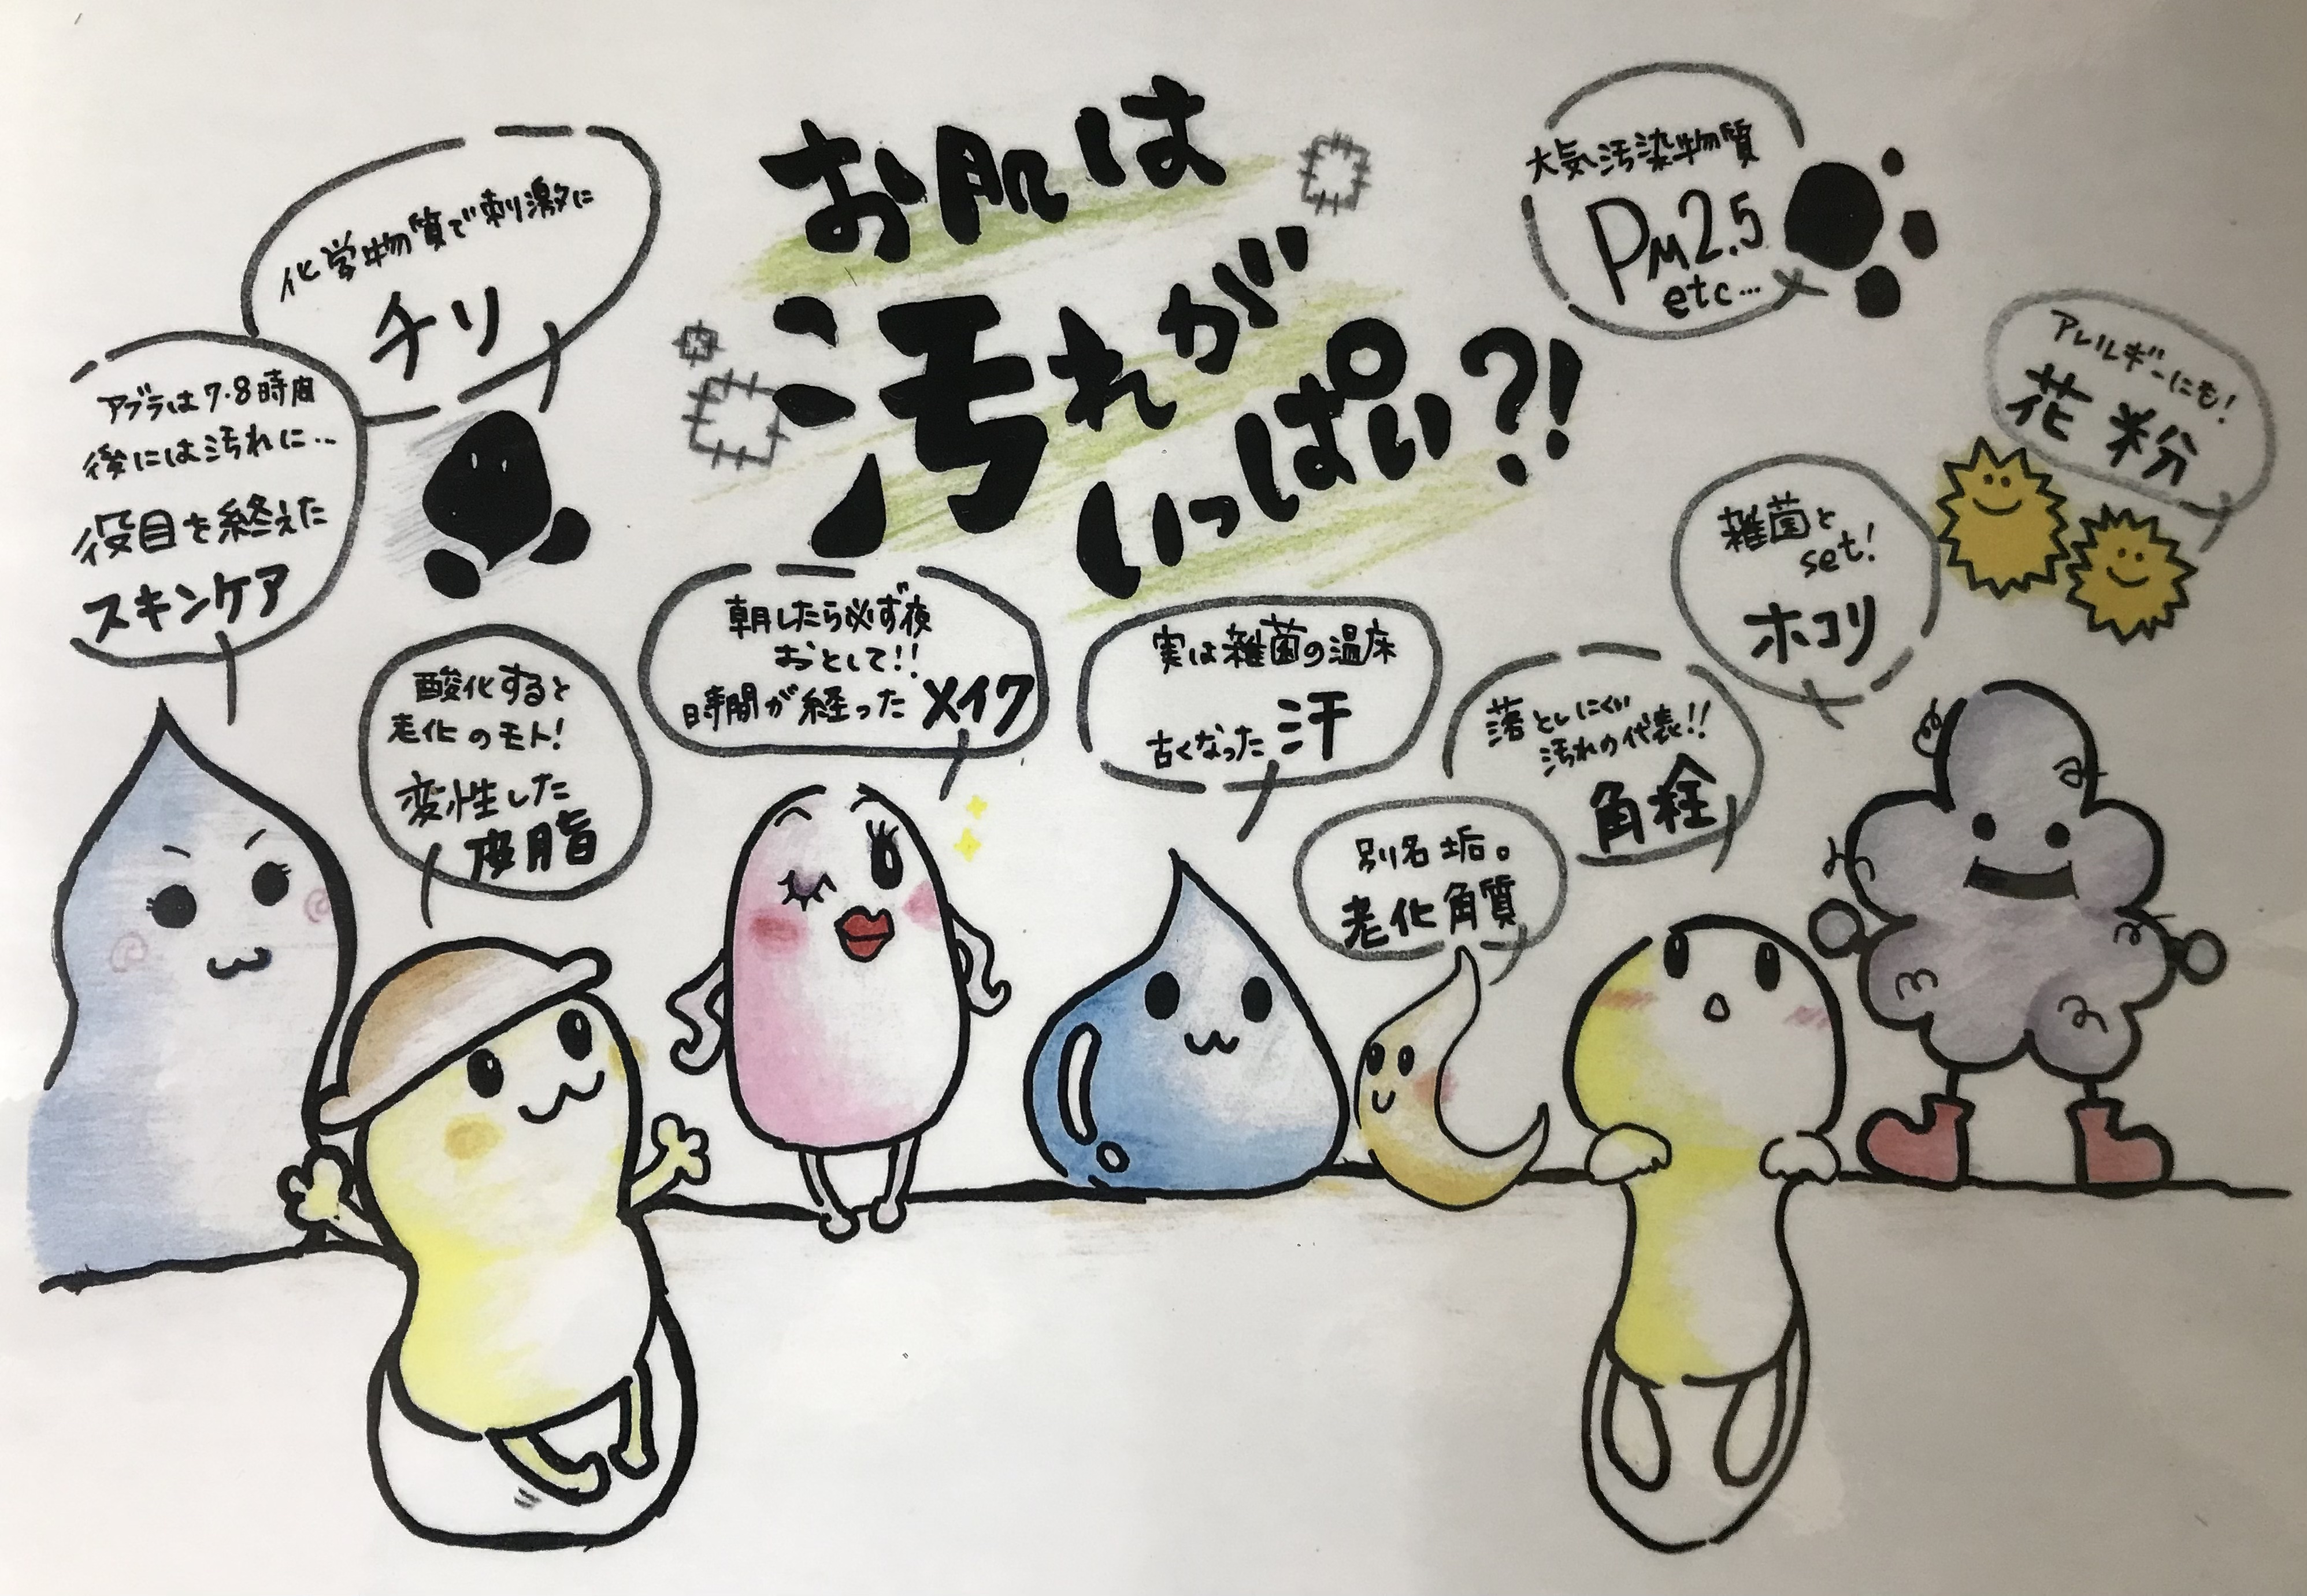 お肌は
汚れが
いっぱい?!
化学物質で刺激に
チリ
アブラは7・8時間
後には汚れに…
役目を終えた
スキンケア
酸化すると
老化のモト!
変性した
皮脂
朝したら必ず夜
おとして!!
時間が経ったメイク
実は雑菌の温床
古くなった汗
別名垢。
老化角質
落としにくい
汚れの代表!!
角栓
雑菌と
set!
ホコリ
大気汚染物質
PM2.5
etc…
アレルギーにも!
花粉